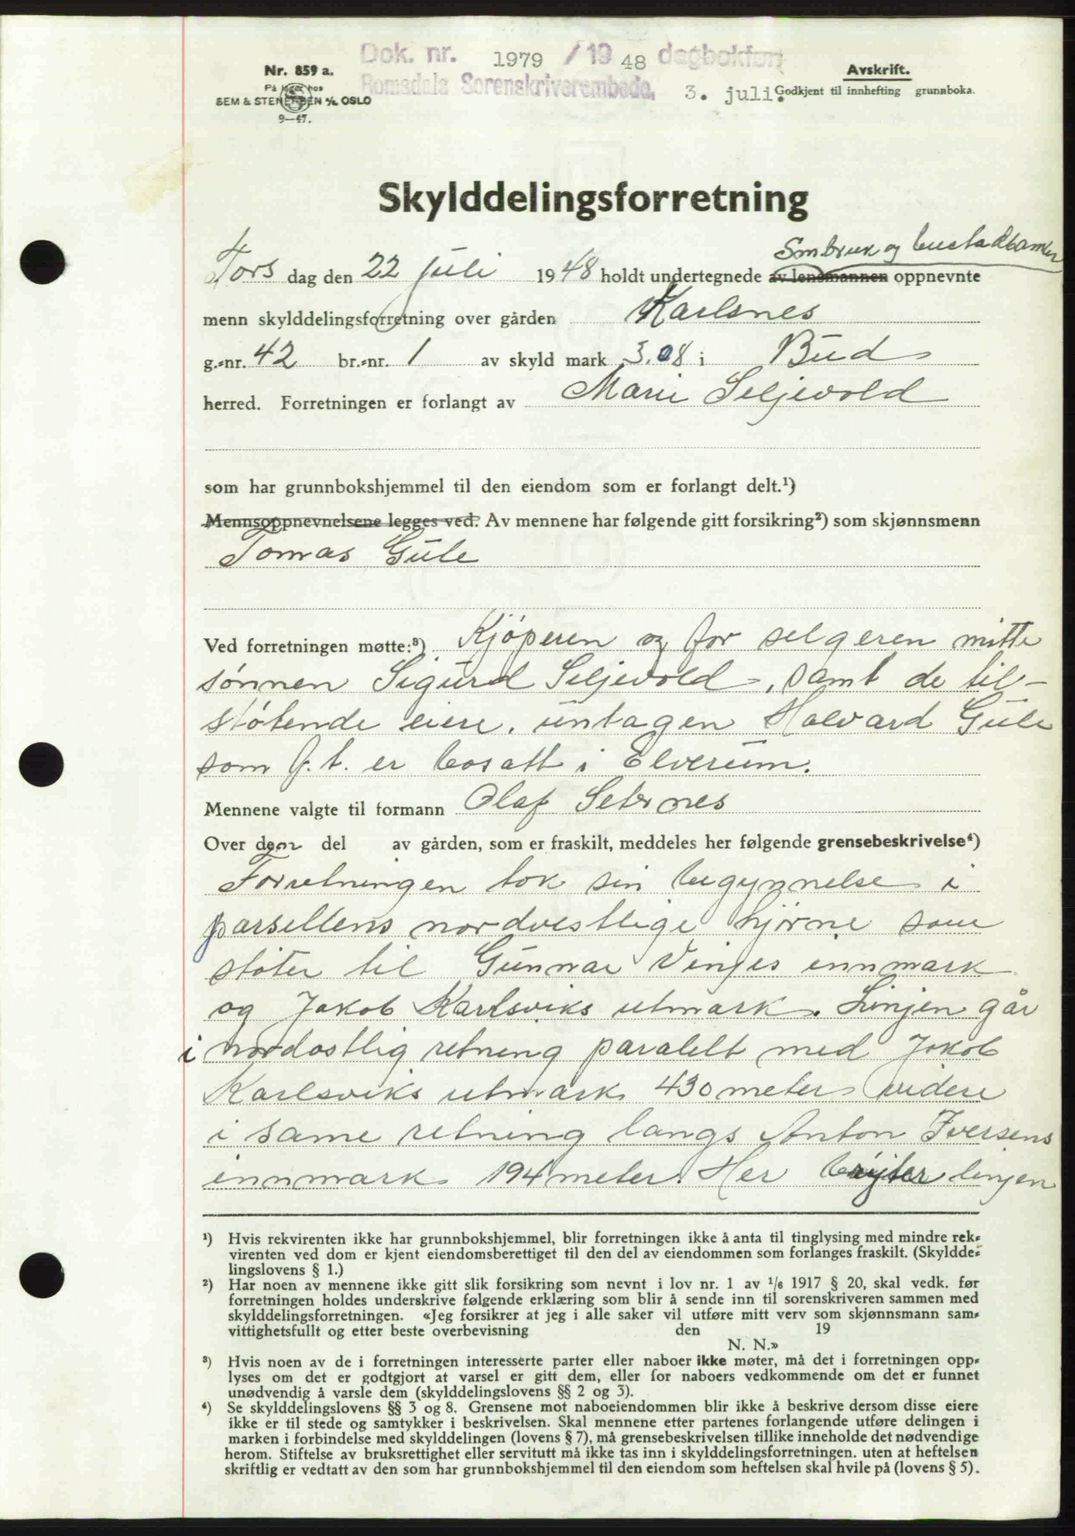 Dok. nr. 1979 / 19 48 dagbokført
Romsdals Sorenskriverembede, 3. juli.
Nr. 859 a.
På lager hos
SEM & STENERSEN A/S OSLO
9—47.
Avskrift.
Godkjent til innhefting grunnboka.
Skylddelingsforretning
Smbruk og bustadbanken
Tors dag den 22 juli 1948 holdt undertegnede av lensmannen oppnevnte
menn skylddelingsforretning over gården Karlsnes
g.-nr. 42 br.-nr. 1 av skyld mark 3.08 i Bud
herred. Forretningen er forlangt av Marie Seljevold
som har grunnbokshjemmel til den eiendom som er forlangt delt.¹)
Mennsoppnevnelsene legges ved. Av mennene har følgende gitt forsikring²) som skjønnsmenn
Tomas Gule
Ved forretningen møtte:³) Kjøperen og for selgeren møtte
sønnen Sigurd Seljevold, samt de til-
støtende eiere, untagen Halvard Gule
som f.t. er bosatt i Elverum.
Mennene valgte til formann Olaf Seternes
Over den del av gården, som er fraskilt, meddeles her følgende grensebeskrivelse⁴)
Forretningen tok sin begynnelse i
parsellens nordvestlige hjørne som
støter til Gunnar Vinjes innmark
og Jakob Karlsviks utmark. Linjen går
i nordostlig retning paralelt med Jakob
Karlsviks utmark 430 meter videre
i same retning langs Anton Iversens
innmark 194 meter. Her bryter linjen
¹) Hvis rekvirenten ikke har grunnbokshjemmel, blir forretningen ikke å anta til tinglysing med mindre rek-
virenten ved dom er kjent eiendomsberettiget til den del av eiendommen som forlanges fraskilt. (Skyldde-
lingslovens § 1.)
²) Har noen av mennene ikke gitt slik forsikring som nevnt i lov nr. 1 av 1/6 1917 § 20, skal vedk. før
forretningen holdes underskrive følgende erklæring som blir å sende inn til sorenskriveren sammen med
skylddelingsforretningen. «Jeg forsikrer at jeg i alle saker vil utføre mitt verv som skjønnsmann sam-
vittighetsfullt og etter beste overbevisning den 19
N. N.»
³) Hvis noen av de i forretningen interesserte parter eller naboer ikke møter, må det i forretningen opp-
lyses om det er godtgjort at varsel er gitt dem, eller for naboers vedkommende om det er funnet
unødvendig å varsle dem (skylddelingslovens §§ 2 og 3).
⁴) Se skylddelingslovens §§ 3 og 8. Grensene mot naboeiendommen blir ikke å beskrive dersom disse eiere
ikke er til stede og samtykker i beskrivelsen. Skal mennene etter partenes forlangende utføre delingen i
marken i forbindelse med skylddelingen (lovens § 7), må grensebeskrivelsen tillike inneholde det nødvendige
herom. Stiftelse av bruksrettighet eller servitutt må ikke tas inn i skylddelingsforretningen, uten at heftelsen
skriftlig er vedtatt av den som har grunnbokshjemmel til den eiendom som heftelsen skal hvile på (lovens § 5).